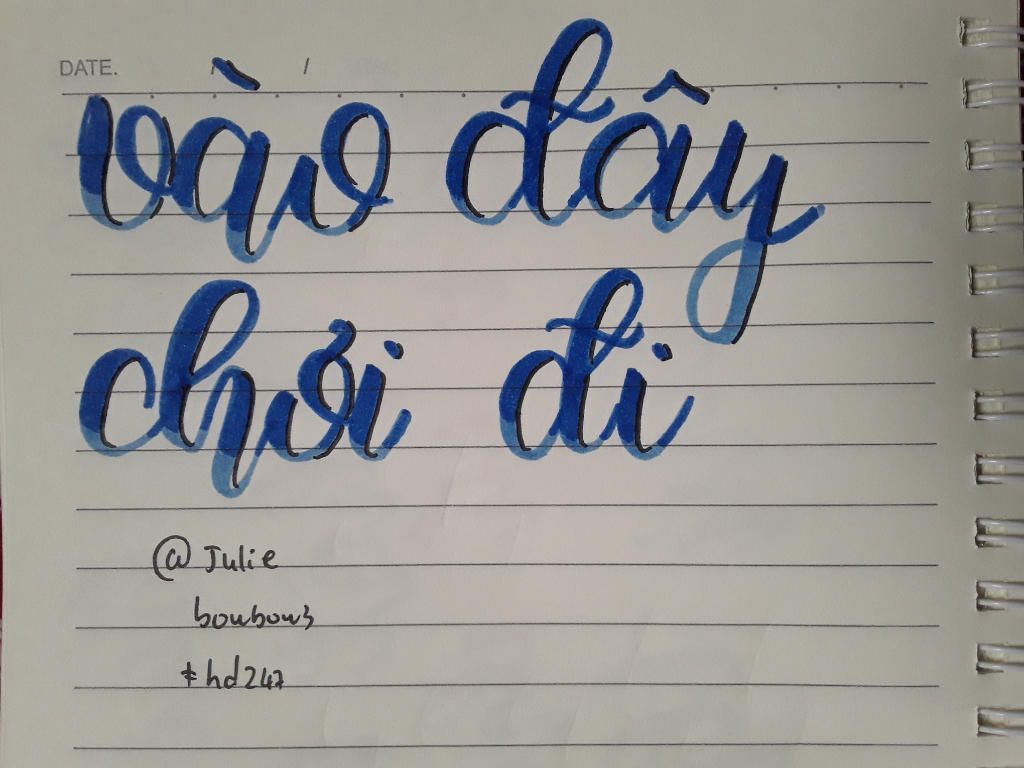 DATE. / /
vào đây
chơi đi
@Julie
bowbow3
#hd247